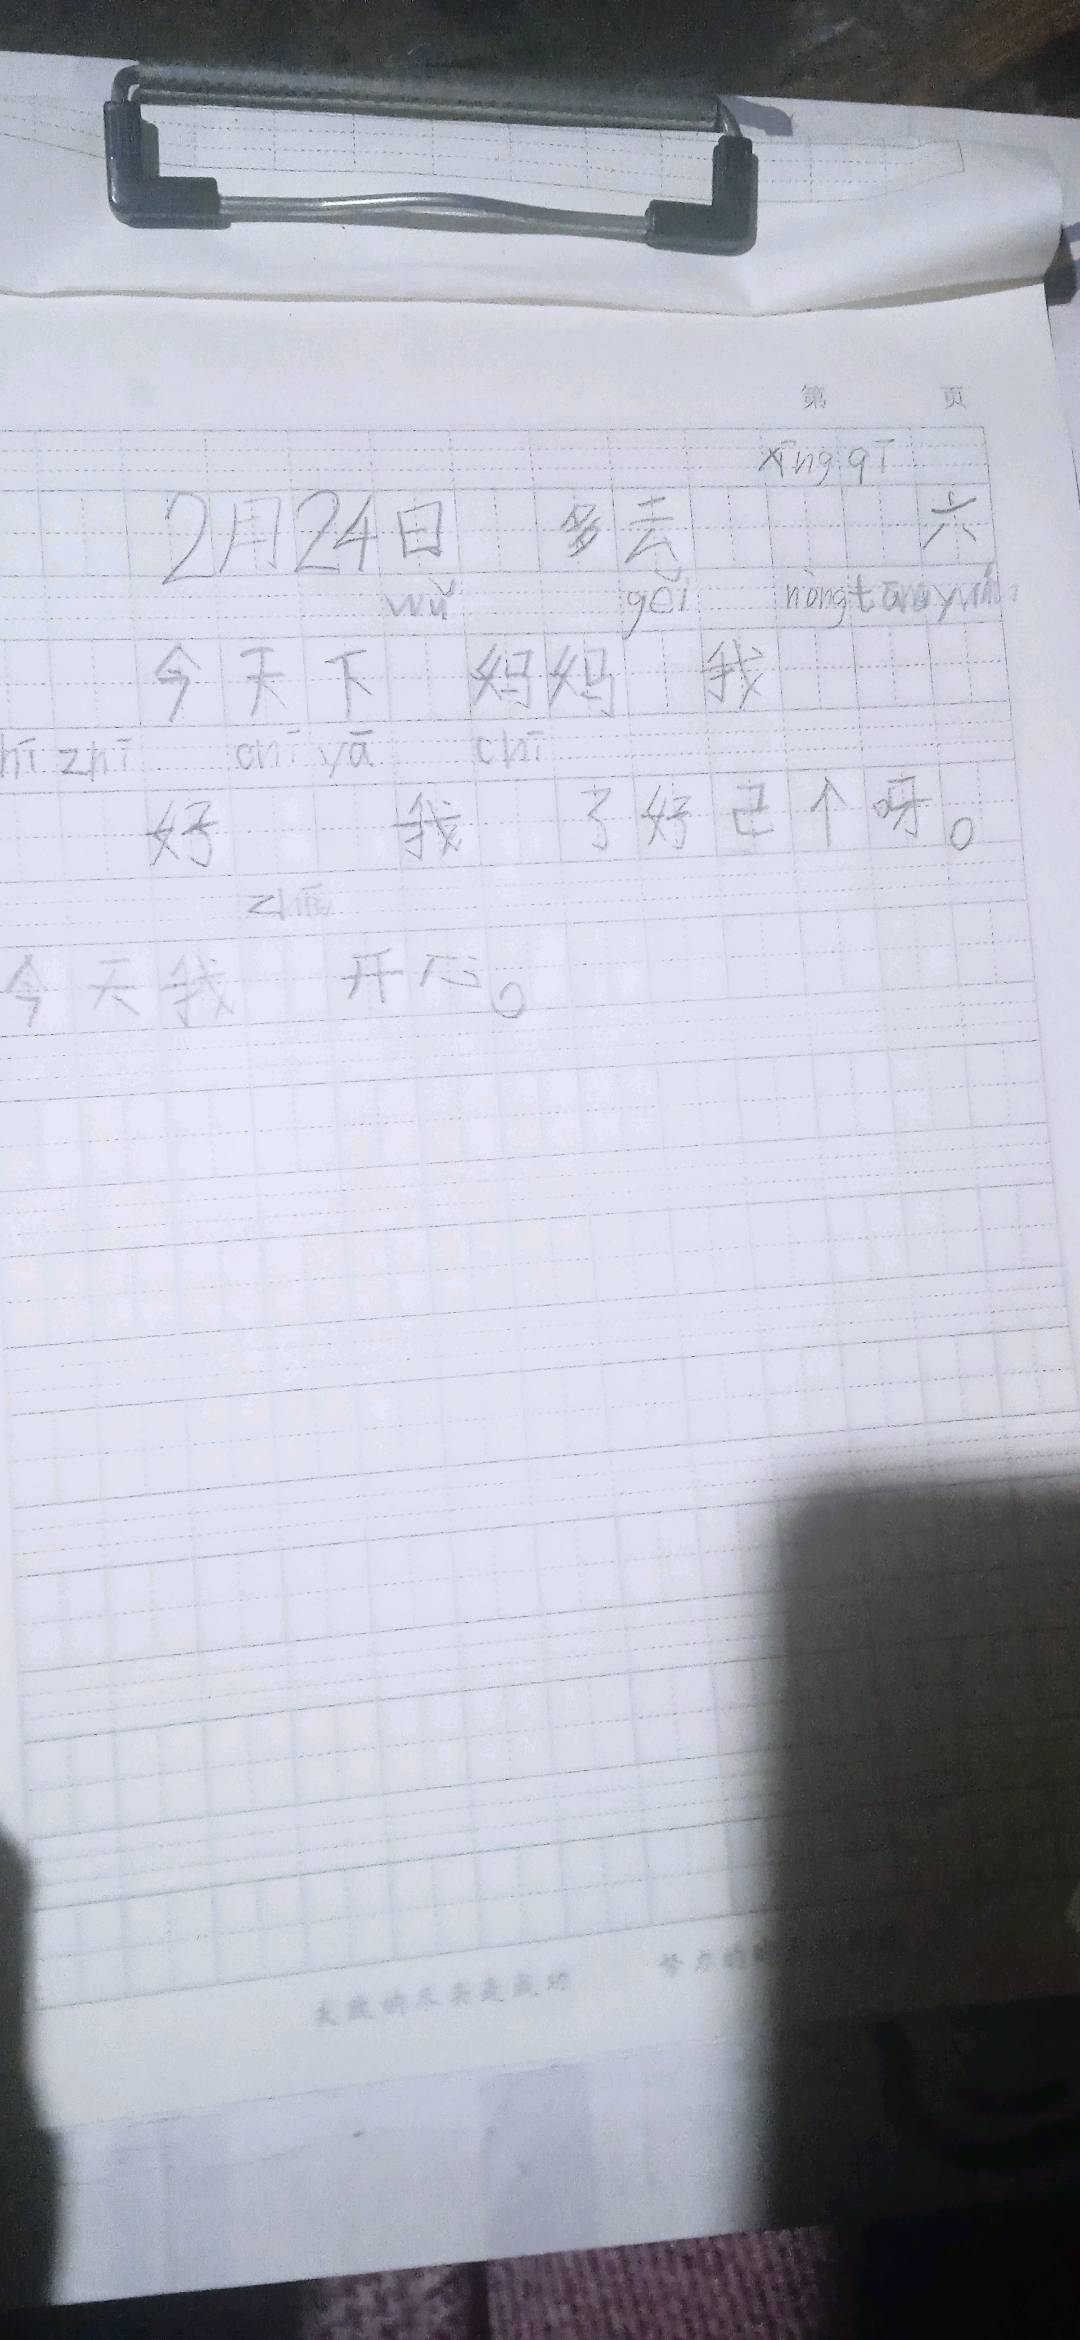 第 页
xīng qī
2月24日 多云 六
wǔ gěi nòng tāng yuán
今天下 妈妈 我
hī zhī chī yā chī
好 我 了好己个呀。
zhēn
今天我 开心。
失败的尽头是成功 努力的